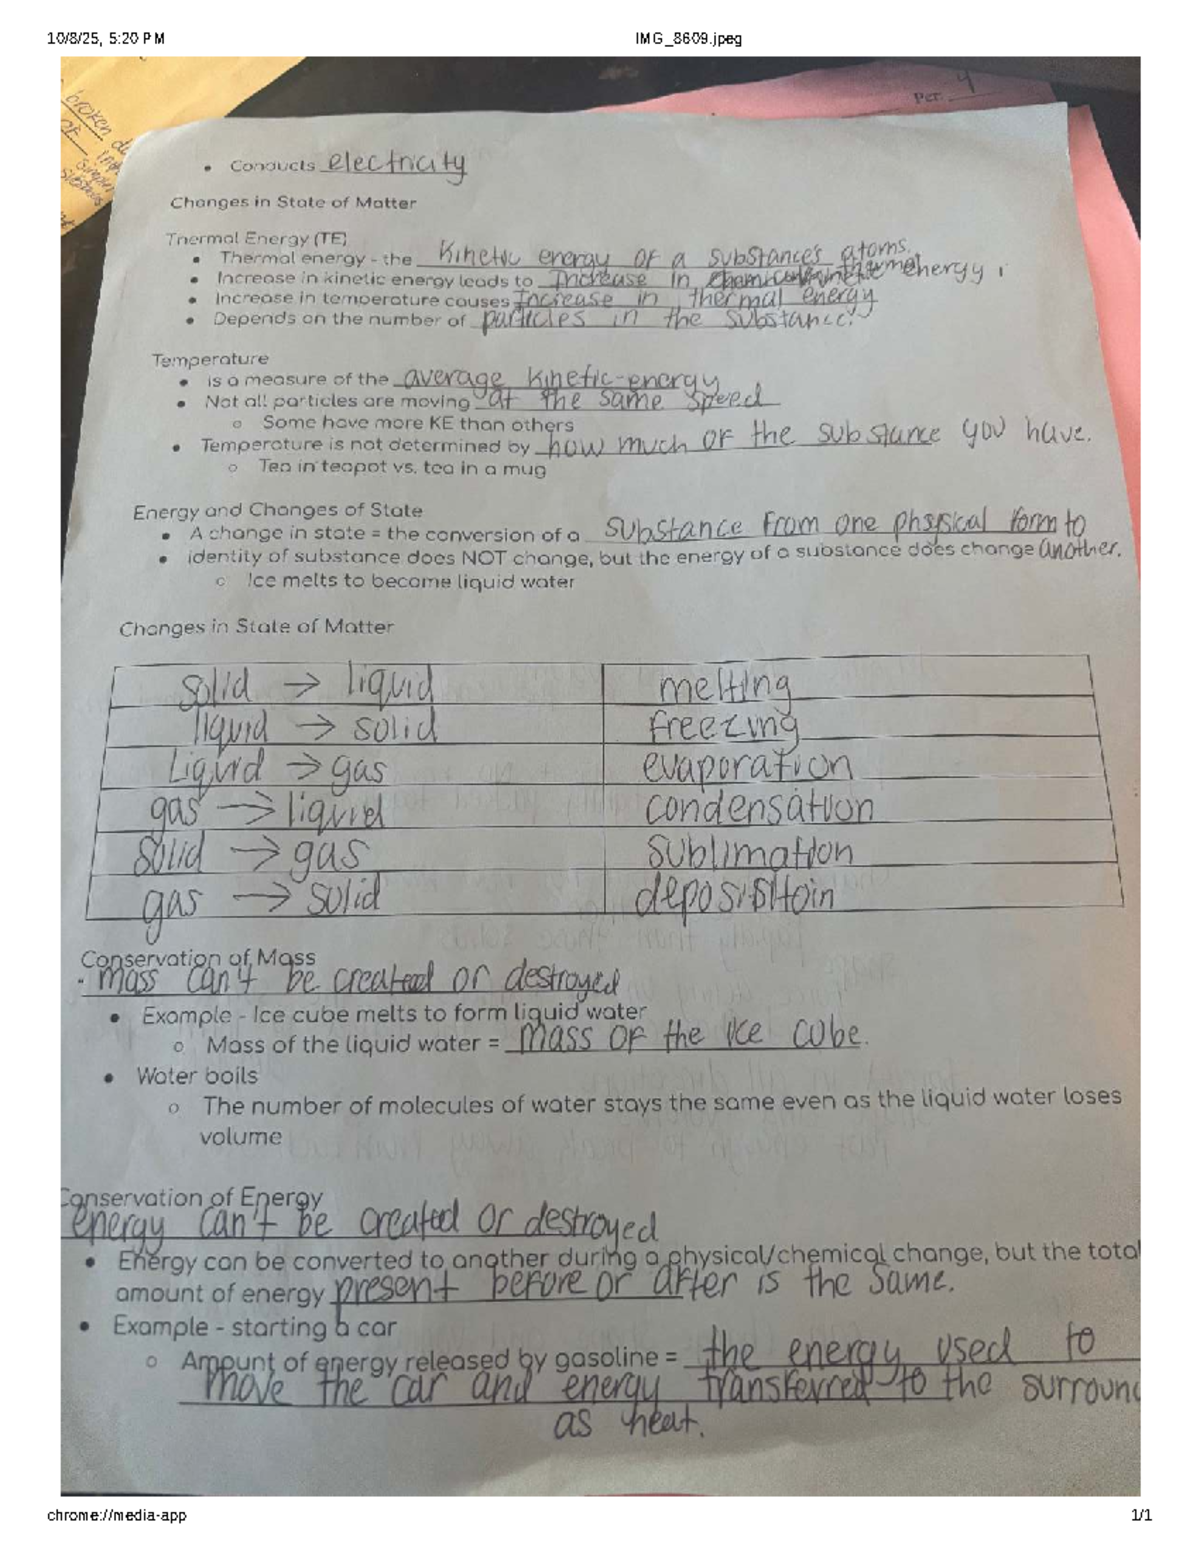 10/8/25, 5:20 PM IMG_8609.jpeg
broken
Per. 4
• Conducts electricity
Changes in State of Matter
Thermal Energy (TE)
• Thermal energy - the kinetic energy of a substance's atoms.
• Increase in kinetic energy leads to Increase in thermal energy
• Increase in temperature causes Increase in thermal energy
• Depends on the number of particles in the substance.
Temperature
• is a measure of the average kinetic-energy
• Not all particles are moving at the same speed
○ Some have more KE than others
• Temperature is not determined by how much of the substance you have.
○ Tea in teapot vs. tea in a mug
Energy and Changes of State
• A change in state = the conversion of a substance from one physical form to
another.
• identity of substance does NOT change, but the energy of a substance does change
○ Ice melts to become liquid water
Changes in State of Matter
solid → liquid melting
liquid → solid freezing
Liquid → gas evaporation
gas → liquid condensation
solid → gas sublimation
gas → solid deposisitoin
Conservation of Mass
- mass can't be created or destroyed
• Example - Ice cube melts to form liquid water
○ Mass of the liquid water = mass of the ice cube.
• Water boils
○ The number of molecules of water stays the same even as the liquid water loses
volume
Conservation of Energy
energy can't be created or destroyed
• Energy can be converted to another during a physical/chemical change, but the total
amount of energy present before or after is the same.
• Example - starting a car
○ Amount of energy released by gasoline = the energy used to
move the car and energy transferred to the surroun
as heat.
chrome://media-app 1/1